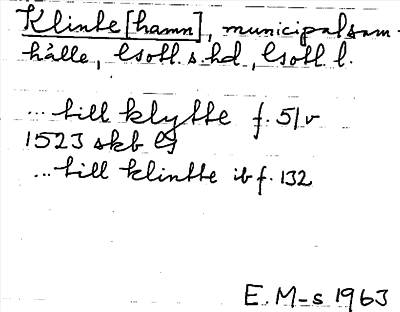 Klinte[hamn], municipalsam-
hälle, Gotl. s. hd, Gotl. l.
... till klytte f. 51v
1523 skb
... till klintte ib f. 132
E. M-s 1963